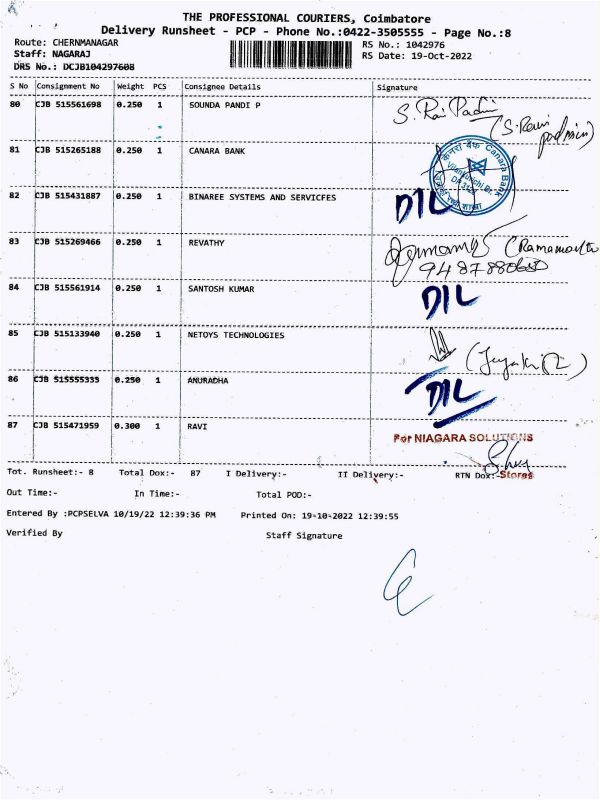 THE PROFESSIONAL COURIERS, Coimbatore
Delivery Runsheet - PCP - Phone No.:0422-3505555 - Page No.:8
Route: CHERNMANAGAR
RS No.: 1042976
Staff: NAGARAJ
RS Date: 19-Oct-2022
DRS No.: DCJB104297608
S No Consignment No Weight PCS Consignee Details Signature
80 CJB 515561698 0.250 1 SOUNDA PANDI P
81 CJB 515265188 0.250 1 CANARA BANK
केनरा बैंक Canara Bank
82 CJB 515431887 0.250 1 BINAREE SYSTEMS AND SERVICFES DIL
83 CJB 515269466 0.250 1 REVATHY
84 CJB 515561914 0.250 1 SANTOSH KUMAR DIL
85 CJB 515133940 0.250 1 NETOYS TECHNOLOGIES
86 CJB 515555333 0.250 1 ANURADHA DIL
87 CJB 515471959 0.300 1 RAVI
For NIAGARA SOLUTIONS
Stores
Tot. Runsheet:- 8 Total Dox:- 87 I Delivery:- II Delivery:- RTN Dox:-
Out Time:- In Time:- Total POD:-
Entered By :PCPSELVA 10/19/22 12:39:36 PM Printed On: 19-10-2022 12:39:55
Verified By Staff Signature